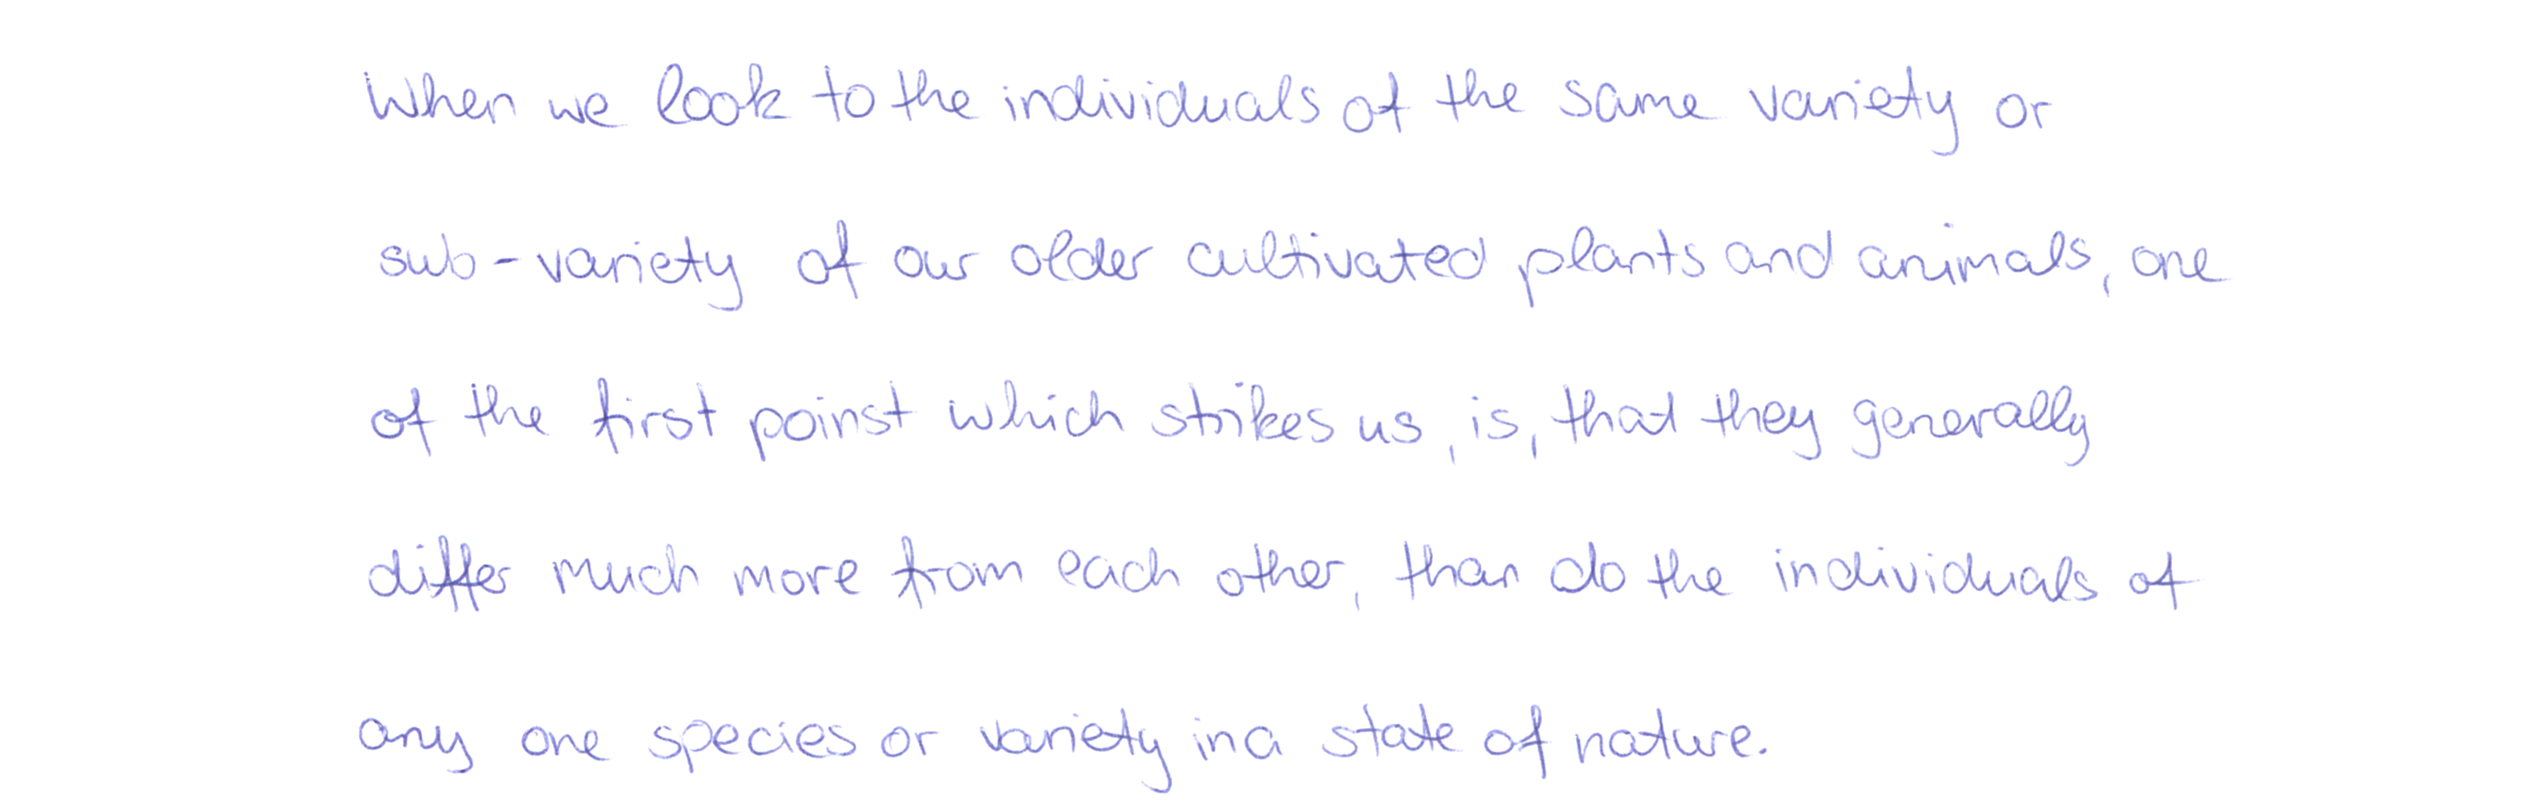 When we look to the individuals of the same variety or
sub-variety of our older cultivated plants and animals, one
of the first poinst which strikes us, is, that they generally
differ much more from each other, than do the individuals of
any one species or variety in a state of nature.